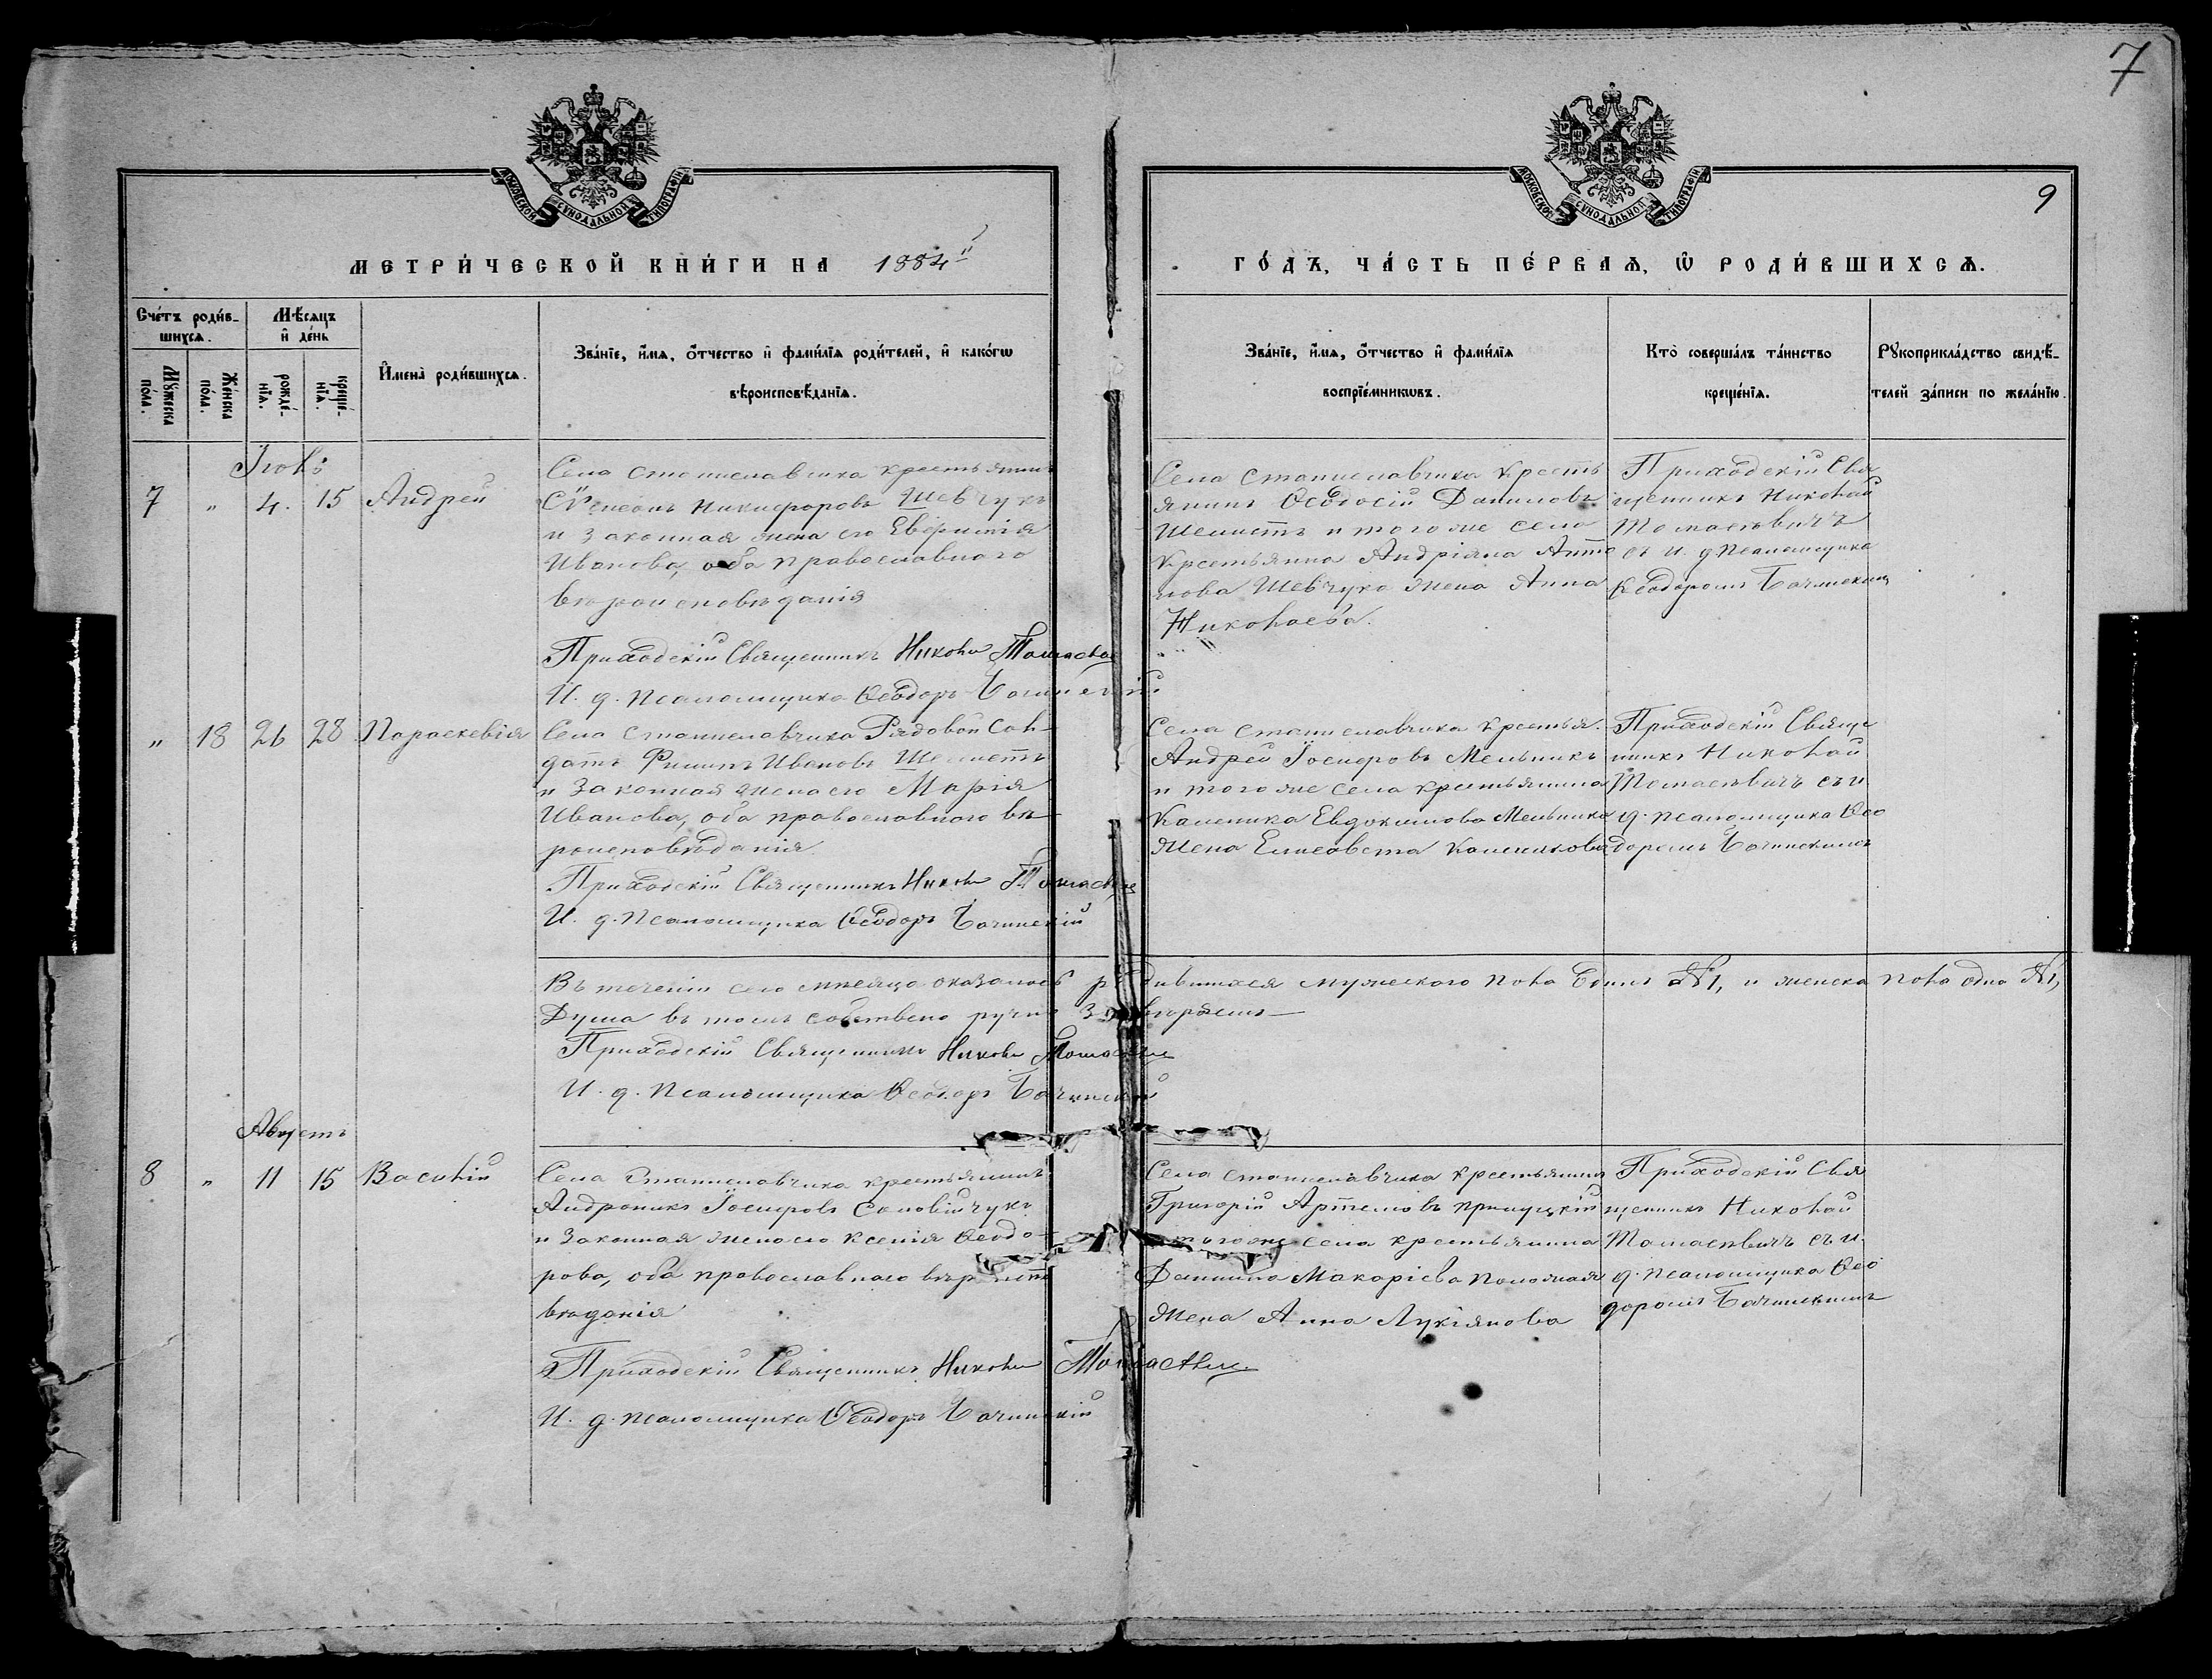 7
МОСКОВСКОЙ СѴНОДАЛЬНОЙ ТИПОГРАФІИ
МОСКОВСКОЙ СѴНОДАЛЬНОЙ ТИПОГРАФІИ
9
МЕТРИ́ЧЕСКОЙ КНИ́ГИ НА 1884й
ГО́ДЪ, ЧА́СТЬ ПЕ́РВАѦ, Ѡ РОДИ́ВШИХСѦ.
Сче́тъ роди́в-
шихсѧ.
Мѣ́сѧцъ
и҆ де́нь
Мꙋ́жеска
по́ла.
Же́нска
по́ла.
рожде́-
нїѧ.
креще́-
нїѧ.
И҆мена̀ роди́вшихсѧ.
Зва́нїе, и҆́мѧ, ѻ҆́тчество и҆ фами́лїѧ роди́телей, и҆ како́гѡ
вѣроисповѣ́данїѧ.
Зва́нїе, и҆́мѧ, ѻ҆́тчество и҆ фами́лїѧ
воспрїе́мникѡвъ.
Кто̀ соверша́лъ та́инство
креще́нїѧ.
Рꙋкоприкла́дство свидѣ́-
телей за́писи по жела́нїю.
Іюль
7 " 4. 15 Андрей
Села Станиславчика крестьянинъ
Сѵмеонъ Никифоровъ Шевчукъ
и законная жена его Евфимія
Иванова, оба православного
вѣроисповѣданія
Приходскій Священникъ Николай Томасевич
И. д. псаломщика Ѳеодоръ Бачинскій
Села Станиславчика Кресть
янинъ Ѳеодосій Даниловъ
Шелистъ и того же села
Крестьянина Андріяна Анто
нова Шевчука жена Анна
Николаева.
Приходскій Свя
щенникъ Николай
Томасевичъ
съ и. д. псаломщика
Ѳеодоромъ Бачинскимъ
" 18 26 28 Параскевія
Села Станиславчика Рядовой Сол-
датъ Филипъ Ивановъ
и законная жена его Марія
Иванова, оба православного вѣ
роисповѣданія
Приходскій Священникъ Николай Томасевич
И. д. псаломщика Ѳеодоръ Бачинскій
Села Станиславчика крестья.
Андрей Іосифовъ Мельникъ
и того же села крестьянина
Каленика Евдокимова Мельника
жена Елисавета Каленикова
Приходскій Свяще
нникъ Николай
Томасевичъ съ и.
д. псаломщика Ѳео
доромъ Бачинскимъ
Въ теченіи сего мѣсяца оказалось родившихся мужеского пола Единъ №1, и женска пола одна №1,
Душа въ томъ собствено ручно Завѣряемъ
Приходскій Священникъ Николай Томасевич
И. д. Псаломщика Ѳеодоръ Бачинскій
Августъ
8 " 11 15 Василій
Села Станиславчика крестьянинъ
Андроникъ Іосифовъ Соловійчукъ
и Законная жена его Ксенія Ѳеодо-
рова, оба православнаго
вѣданія
Приходскій Священникъ Николай Томасевич
И. д. псаломщика Ѳеодоръ Бачинскій
Села Станиславчика крестьянинъ
Григорій Артемовъ
того же села крестьянина
Даниила Макаріева
жена Анна Лукіянова
Приходскій Свя
щенникъ Николай
Томасевичъ съ и.
д. псаломщика Ѳео
доромъ Бачинскимъ